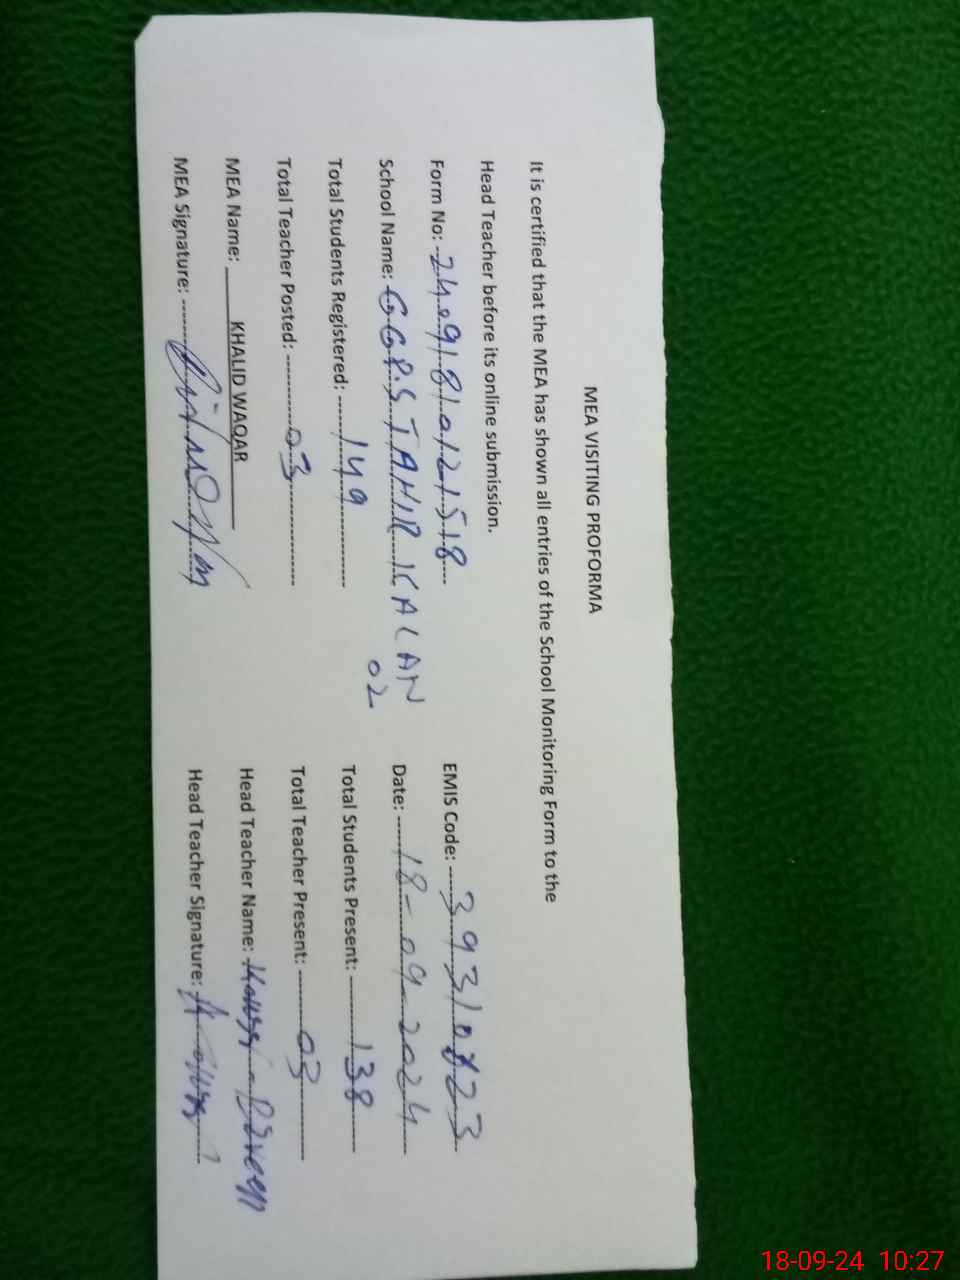 MEA VISITING PROFORMA
It is certified that the MEA has shown all entries of the School Monitoring Form to the
Head Teacher before its online submission.
Form No: 24091810121518 EMIS Code: 39310823
School Name: GGPS TAHIR KALAN 02 Date: 18-09-2024
Total Students Registered: 149 Total Students Present: 138
Total Teacher Posted: 03 Total Teacher Present: 03
MEA Name: KHALID WAQAR Head Teacher Name:
MEA Signature: Head Teacher Signature:
18-09-24 10:27